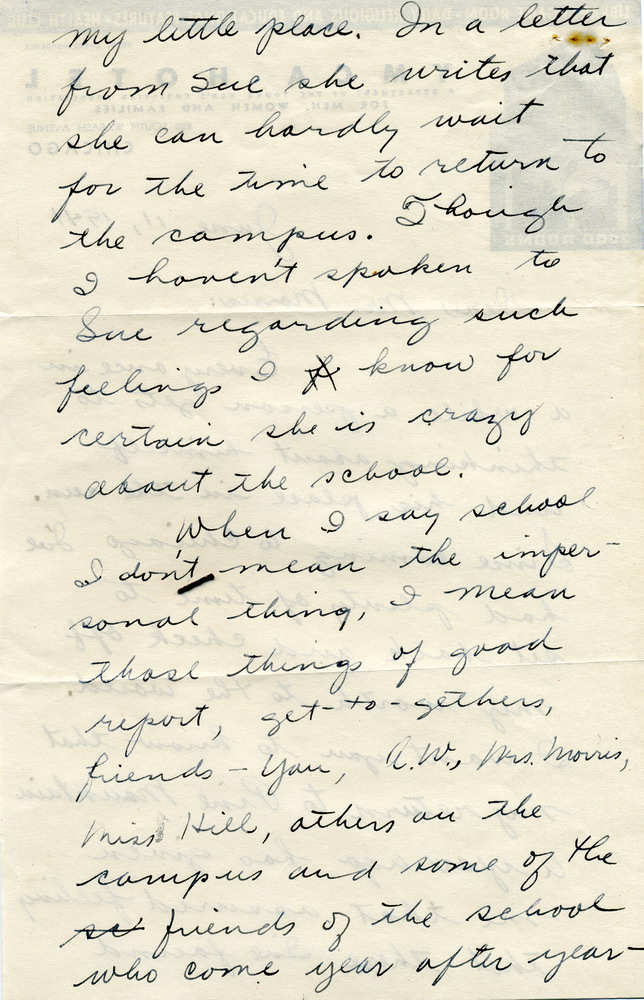 my little place. In a letter
from Sue she writes that
she can hardly wait
for the time to return to
the campus. Though
I haven't spoken to
Sue regarding such
feelings I know for
certain she is crazy
about the school.
When I say school
I don't mean the imper-
sonal thing, I mean
those things of good
report, get-to gethers,
friends - You, A.W., Mrs. Morris,
Miss Hill, others on the
campus and some of the
friends of the school
who come year after year-